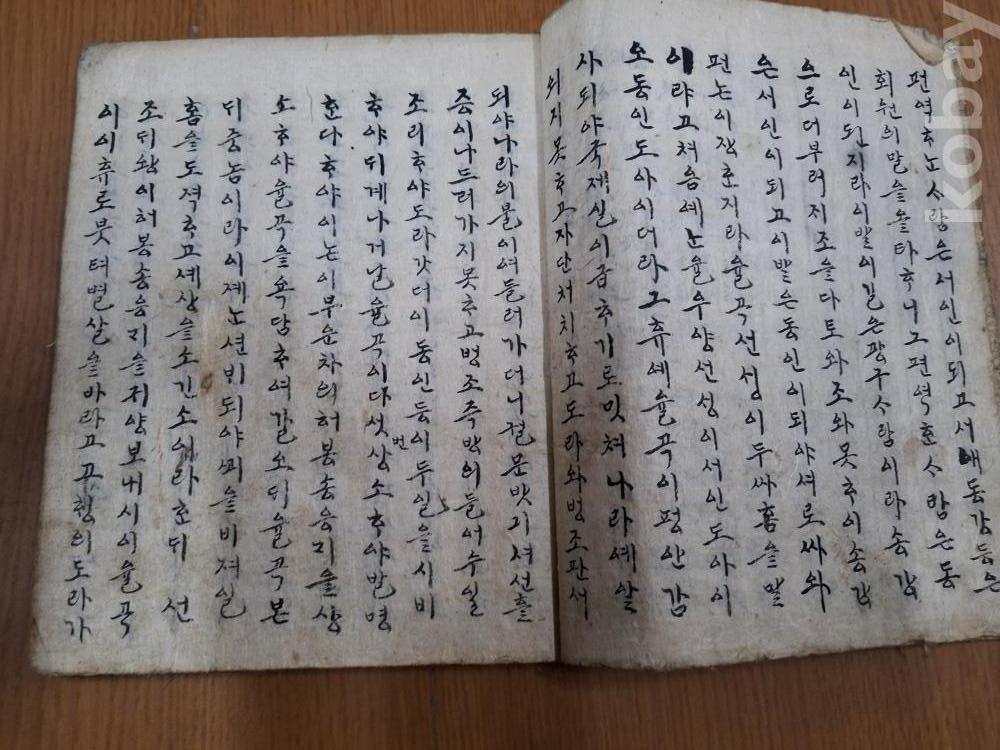 편역ᄒᆞ노 사ᄅᆞᆷ은 서인이 되고 서애 동강 등은
회원의 말을 올타 ᄒᆞ니 그 편역ᄒᆞᆫ 사ᄅᆞᆷ은 동
인이 된지라 이 발이 길은 광구 사ᄅᆞᆷ이라 송강
으로 더부러 저조을 다토와 조와 못ᄒᆞ이 송강
은 서인이 되고 이발은 동인이 되야 셔로 싸와
편논이 잰ᄒᆞᆫ지라 율곡션ᄉᆡᆼ이 두 싸홈을 말
이랴고 쳐음예난 율우양션ᄉᆡᆼ이 서인도 아이
오 동인도 아이더라 그 휴예 율곡이 평안감
사 되야 국제실이 금ᄒᆞ기로 밋쳐 나라예 알
외지 못ᄒᆞ고 자단처치ᄒᆞ고 도라와 병조판서
되야 나라의 불이여 들러가더니 졀문 밧기셔 션흘
증이 나 드러가지 못ᄒᆞ고 병조죽방의 들어 수일
조리ᄒᆞ야 도라갓더이 동인등이 두 일을 시비
ᄒᆞ야 뒤계나거날 율곡이 다섯 번 상소ᄒᆞ야 발명
ᄒᆞᆫ다 ᄒᆞ야 이논이 부운차의 허봉 송응기을 상
소ᄒᆞ야 율곡을 욕담ᄒᆞ여 갈소뒤 율곡 본
뒤 중놈이라 이졔노 션비 되야 ᄭᅬ을 비져 일
홈을 도적ᄒᆞ고 셰상을 소긴 소에라 ᄒᆞᆫ뒤 선
조뒤왕이 허봉 송응기을 귀양보내시이 율곡
이 이휴로붓터 별살을 바라고 곡행의 도라가